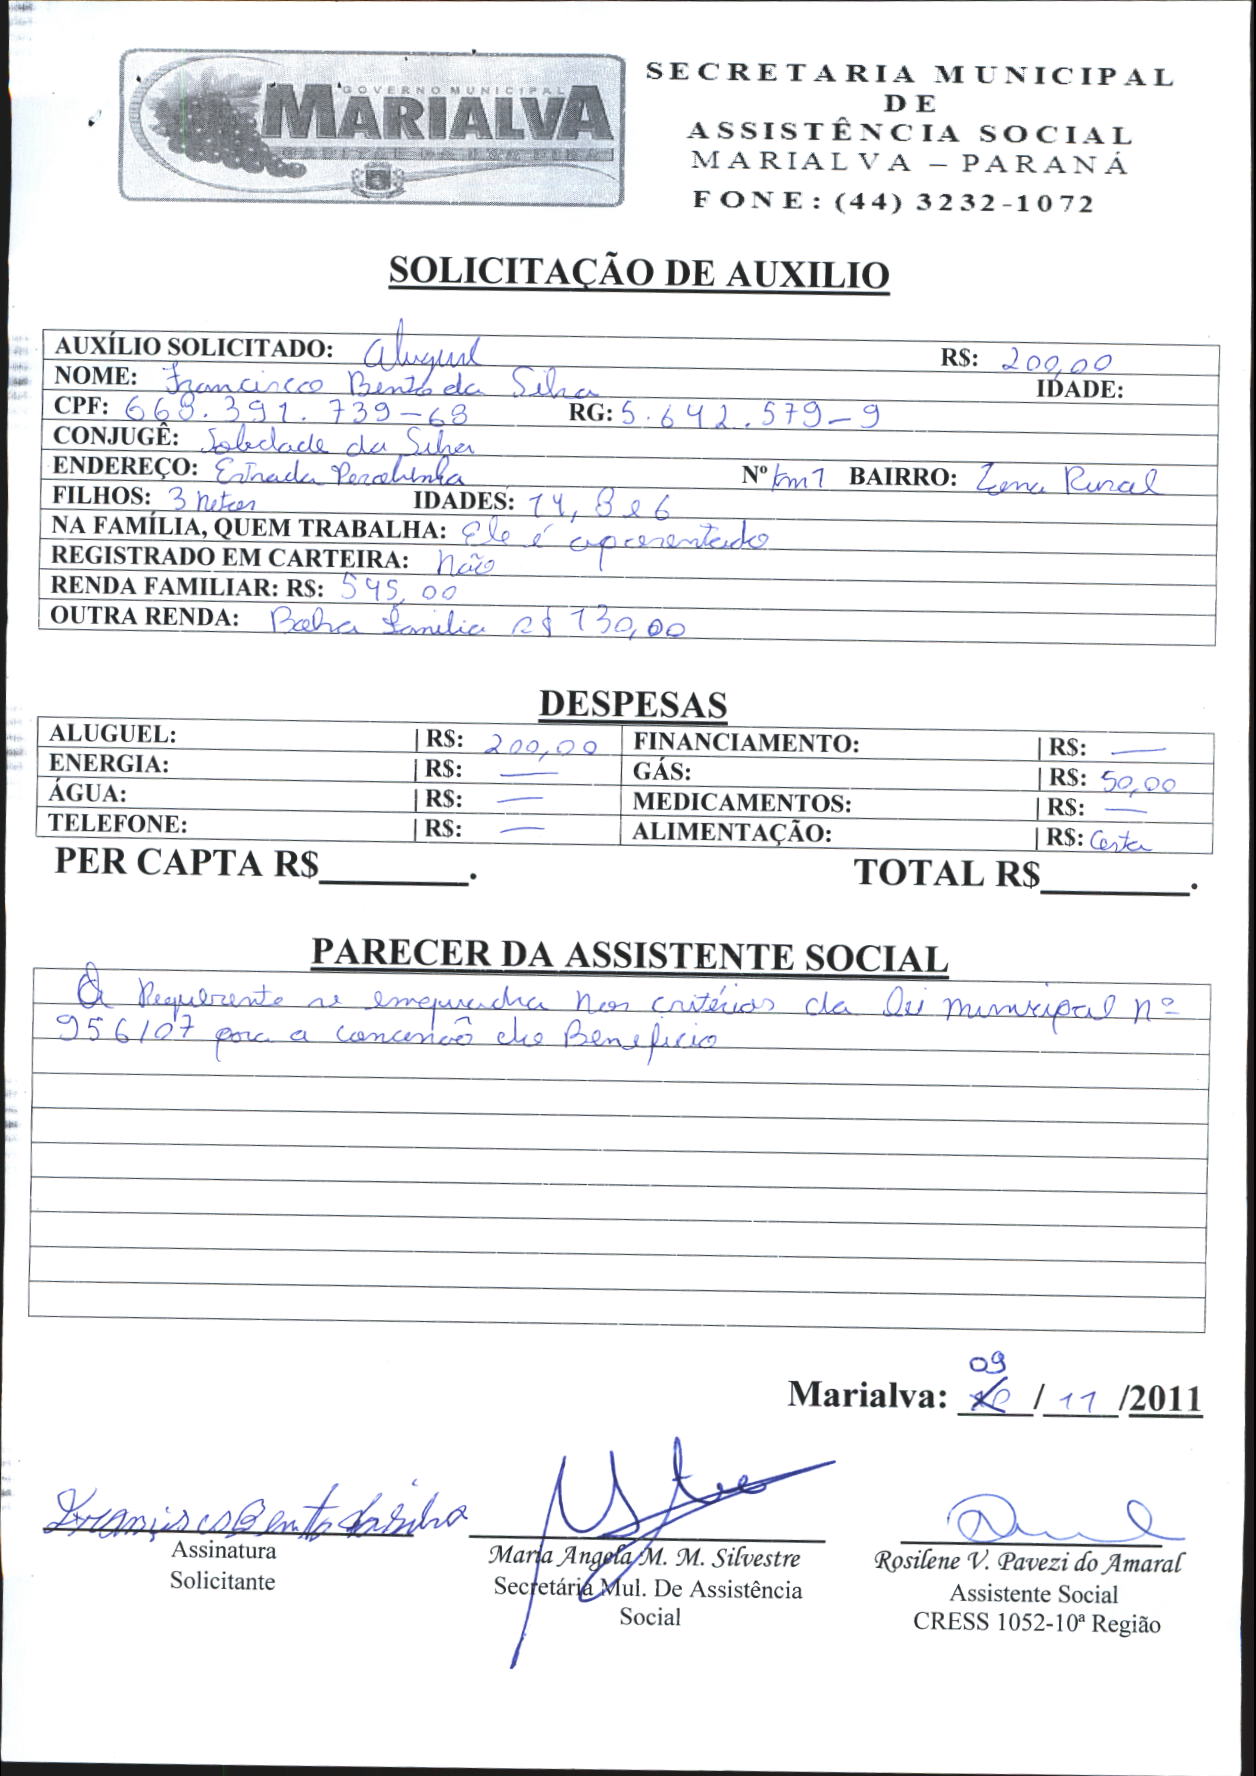 GOVERNO MUNICIPAL
MARIALVA
CAPITAL DA UVA FINA
SECRETARIA MUNICIPAL
DE
ASSISTÊNCIA SOCIAL
MARIALVA – PARANÁ
FONE: (44) 3232-1072
SOLICITAÇÃO DE AUXILIO
AUXÍLIO SOLICITADO: Aluguel R$: 200,00
NOME: Francisco Bento da Silva IDADE:
CPF: 668.391.739-68 RG: 5.642.579-9
CONJUGÊ: Soledade da Silva
ENDEREÇO: Estrada Nº Km 1 BAIRRO: Zona Rural
FILHOS: 3 netos IDADES: 14, 8 e 6
NA FAMÍLIA, QUEM TRABALHA: Ele é aposentado
REGISTRADO EM CARTEIRA: Não
RENDA FAMILIAR: R$: 545,00
OUTRA RENDA: Bolsa Familia R$ 130,00
DESPESAS
ALUGUEL: | R$: 200,00 FINANCIAMENTO: | R$: —
ENERGIA: | R$: — GÁS: | R$: 50,00
ÁGUA: | R$: — MEDICAMENTOS: | R$: —
TELEFONE: | R$: — ALIMENTAÇÃO: | R$: Cesta
PER CAPTA R$________. TOTAL R$________.
PARECER DA ASSISTENTE SOCIAL
O Requerente se enquadra nos critérios da Lei Municipal nº
956/07 para a concessão do Beneficio
09
Marialva: /11/2011
Francisco Bento da Silva
Assinatura
Solicitante
Maria Angela M. M. Silvestre
Secretária Mul. De Assistência
Social
Rosilene V. Pavezi do Amaral
Assistente Social
CRESS 1052-10ª Região